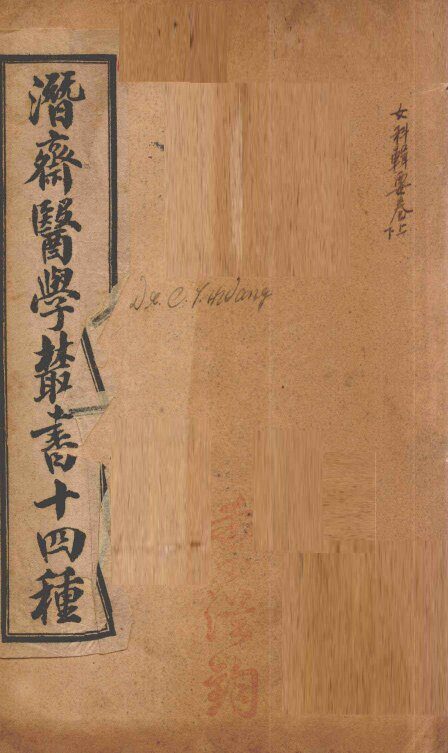 女科輯要卷上下
潛齋醫學叢書十四種
Dr. C. Y. Wang